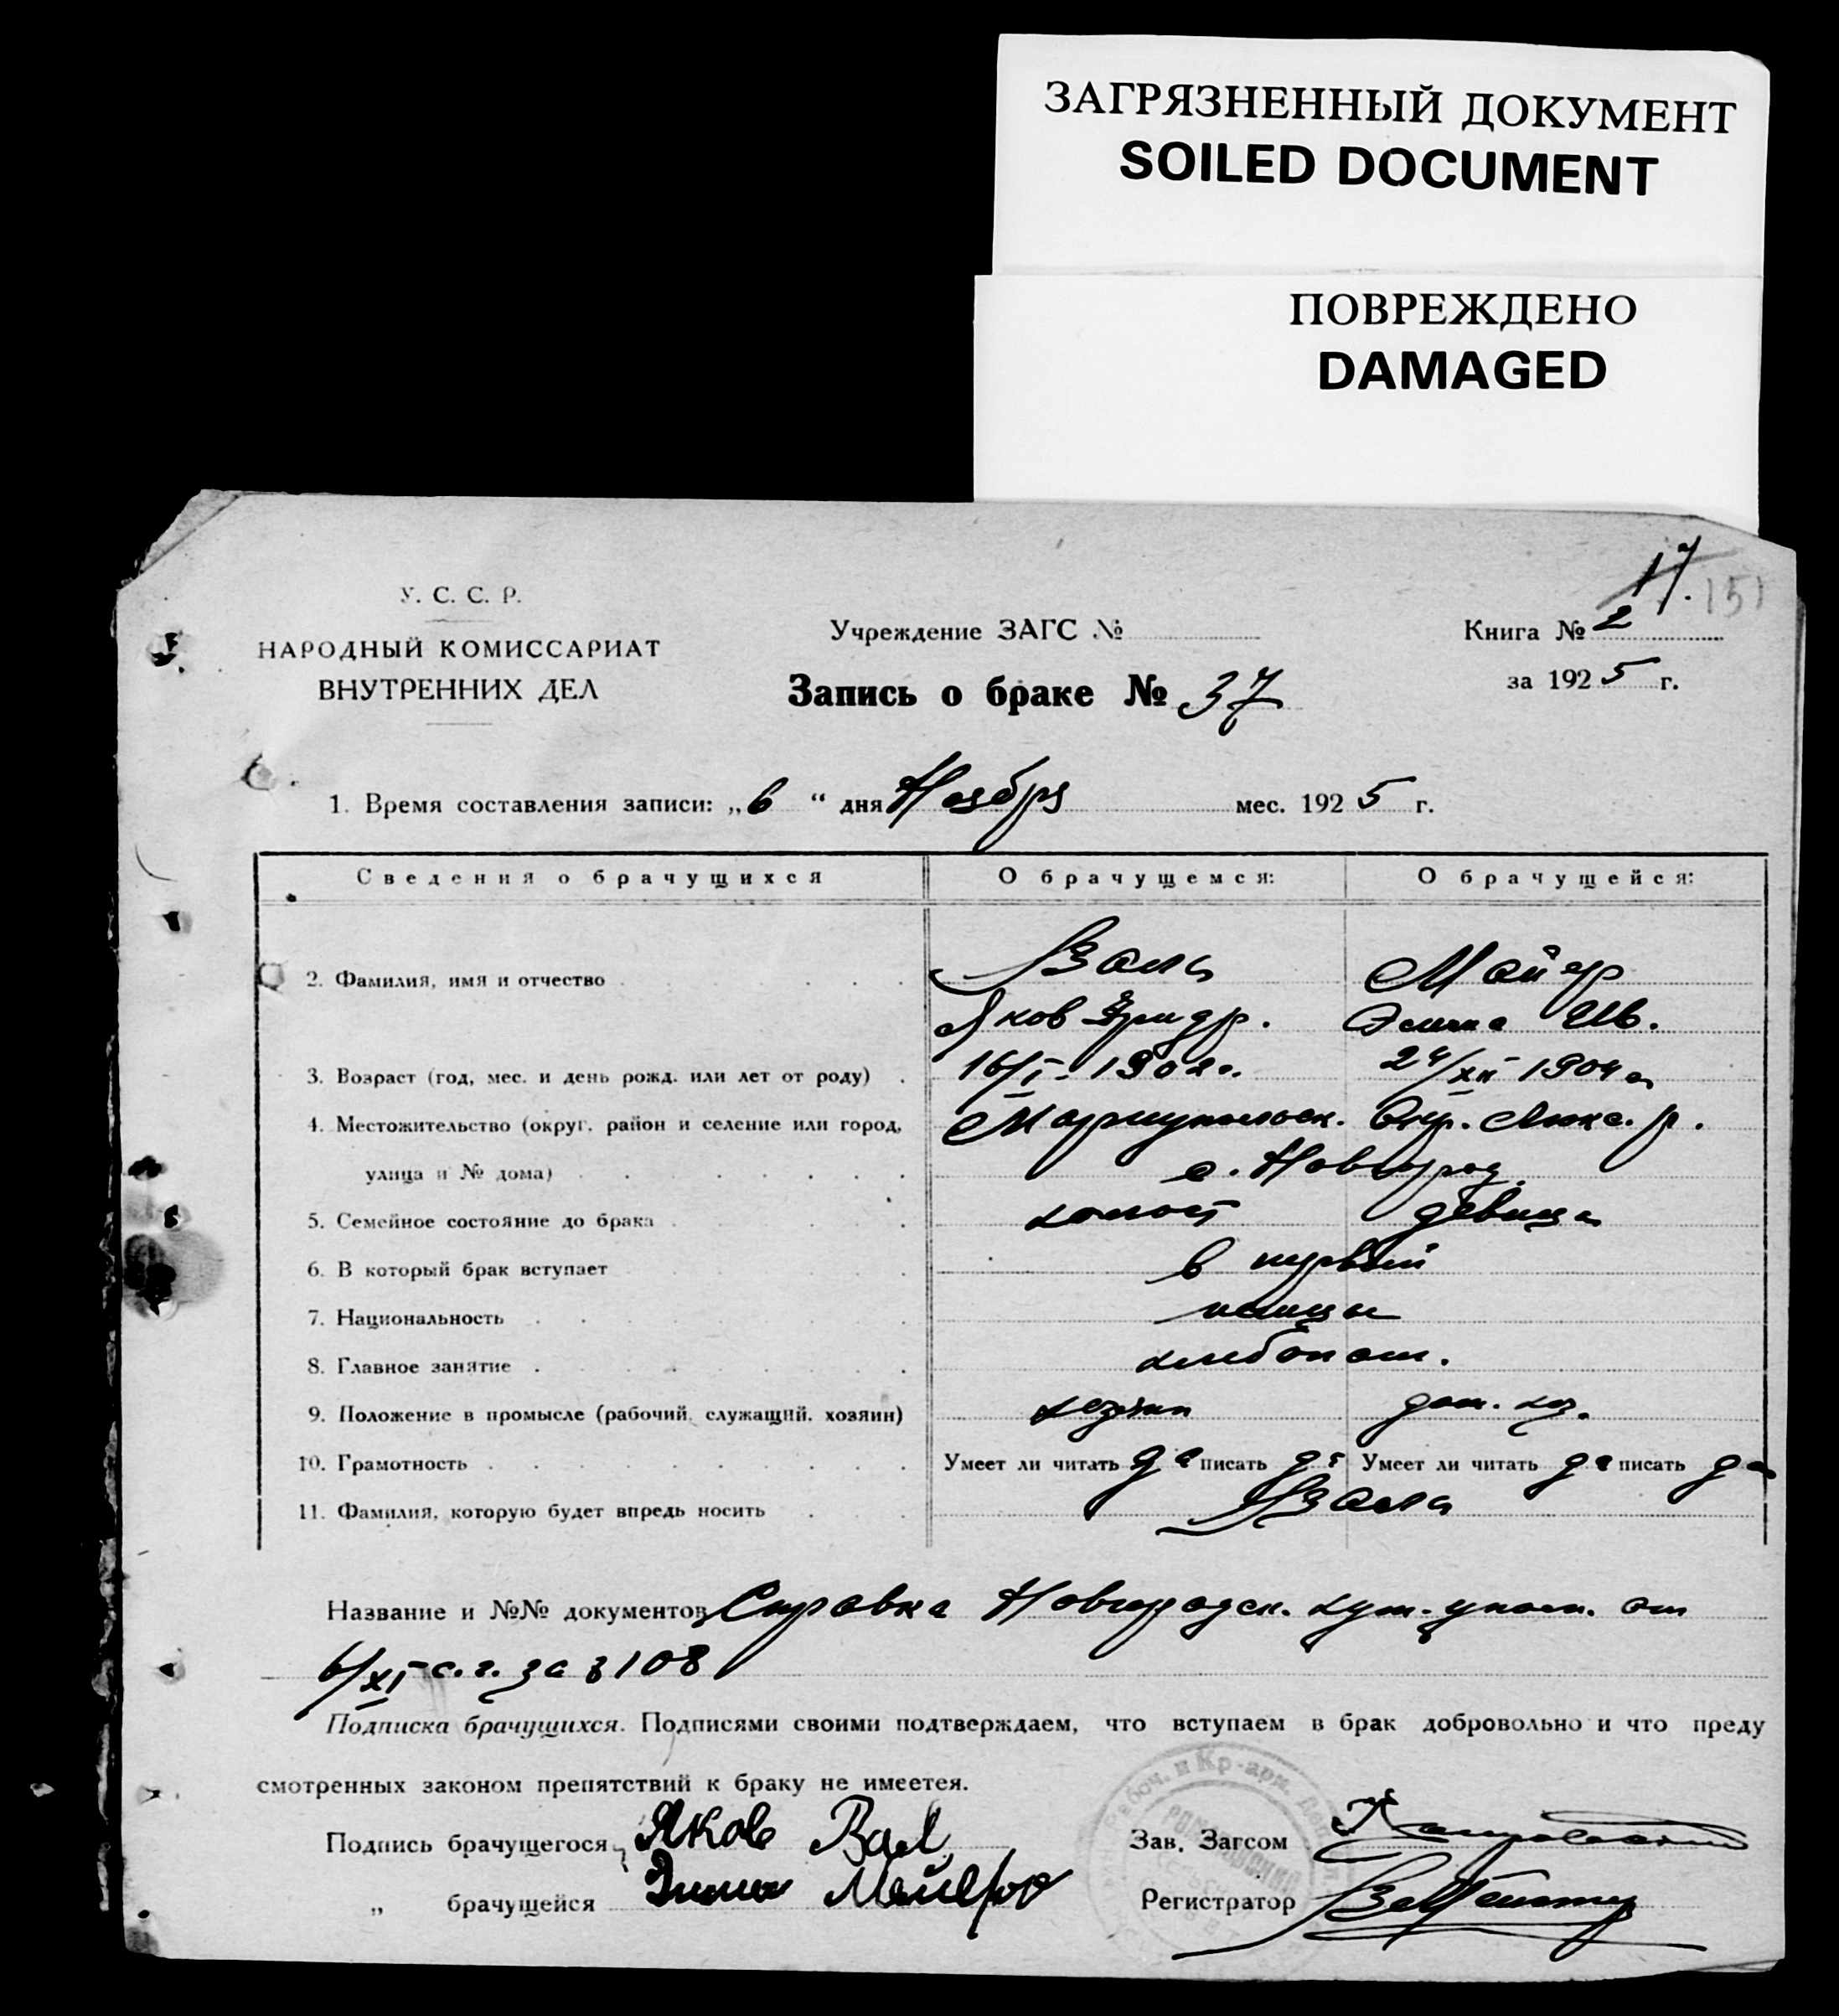 ЗАГРЯЗНЕННЫЙ ДОКУМЕНТ
SOILED DOCUMENT
ПОВРЕЖДЕНО
DAMAGED
17. 151
У. С. С. Р.
НАРОДНЫЙ КОМИССАРИАТ
ВНУТРЕННИХ ДЕЛ
Учреждение ЗАГС №
Книга № 2
за 1925 г.
Запись о браке № 37
1. Время составления записи: „6“ дня Ноября мес. 1925 г.
Сведения о брачущихся О брачущемся: О брачущейся:
2. Фамилия, имя и отчество Валь Майер
Яков Фридр. Эмма Ив.
3. Возраст (год, мес. и день рожд. или лет от роду) 16/I-1902 г. 24/XII 1904 г.
4. Местожительство (округ, район и селение или город, Мариупольск. Окр. Люкс. р.
улица и № дома) с. Новгород
5. Семейное состояние до брака холост девица
6. В который брак вступает в первый
7. Национальность немцы
8. Главное занятие хлебопаш.
9. Положение в промысле (рабочий, служащий, хозяин) хозяин дом. хоз.
10. Грамотность Умеет ли читать да писать да Умеет ли читать да писать да
11. Фамилия, которую будет впредь носить Валь
Название и №№ документов Справка Новгородск. хут. уполн. от
6/XI с. г. за № 108
Подписка брачущихся. Подписями своими подтверждаем, что вступаем в брак добровольно и что преду
смотренных законом препятствий к браку не имеетея.
Подпись брачущегося Яков Вал
„ брачущейся Эмма Майер
Зав. Загсом
Регистратор
Рабоч. и Кр-арм. Деп.